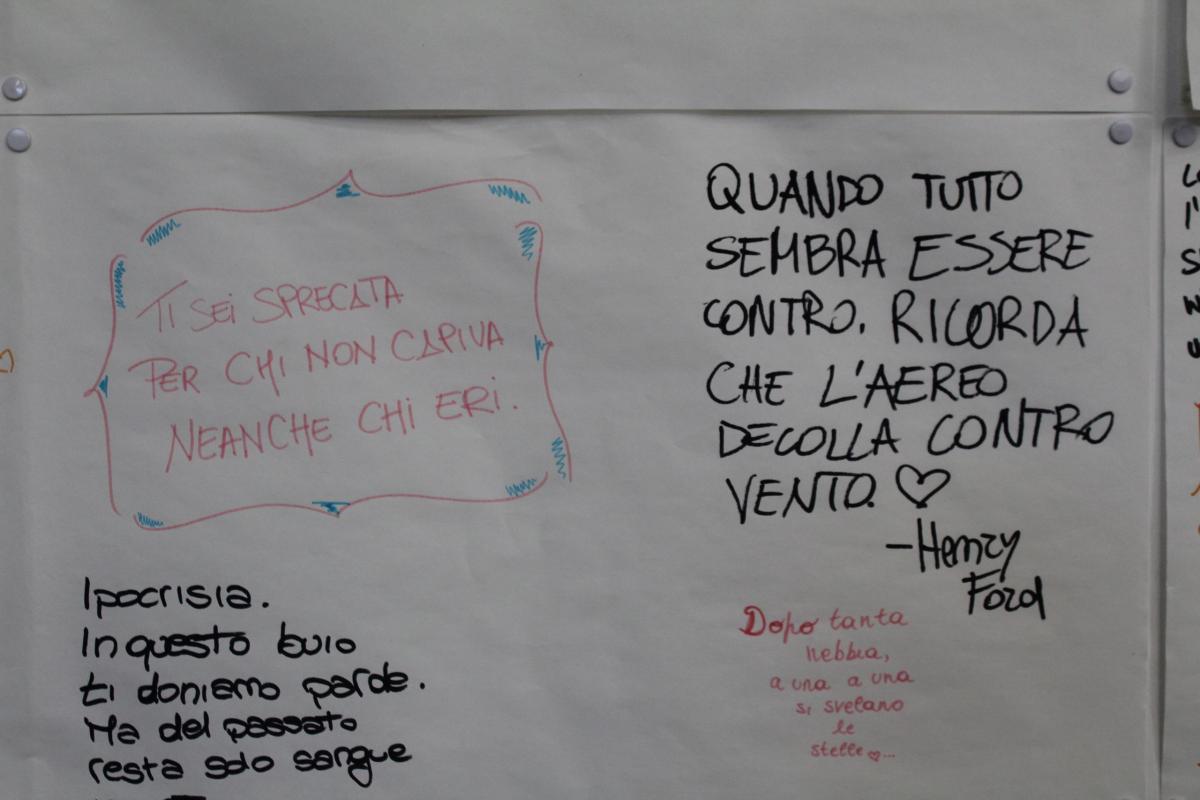 TI SEI SPRECATA
PER CHI NON CAPIVA
NEANCHE CHI ERI.
QUANDO TUTTO
SEMBRA ESSERE
CONTRO. RICORDA
CHE L'AEREO
DECOLLA CONTRO
VENTO. ♡
-Henry
Ford
Ipocrisia.
In questo buio
ti doniamo parde.
Ma del passato
resta solo sangue
Dopo tanta
nebbia,
a una a una
si svelano
le
stelle ♡...